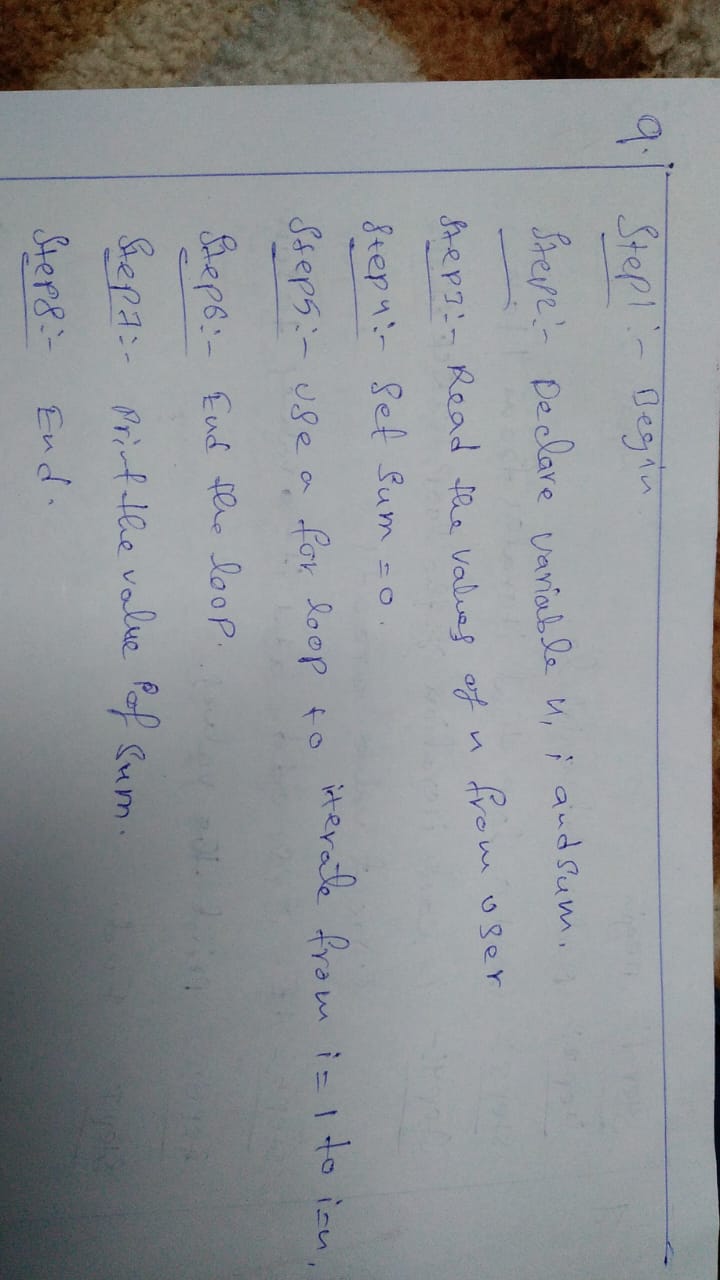 9.
Step1:- Begin
Step2:- Declare variable n, i and sum.
Step3:- Read the values of n from user
Step4:- Set sum = 0.
Step5:- Use a for loop to iterate from i = 1 to i=n,
Step6:- End the loop.
Step7:- Print the value of sum.
Step8:- End.